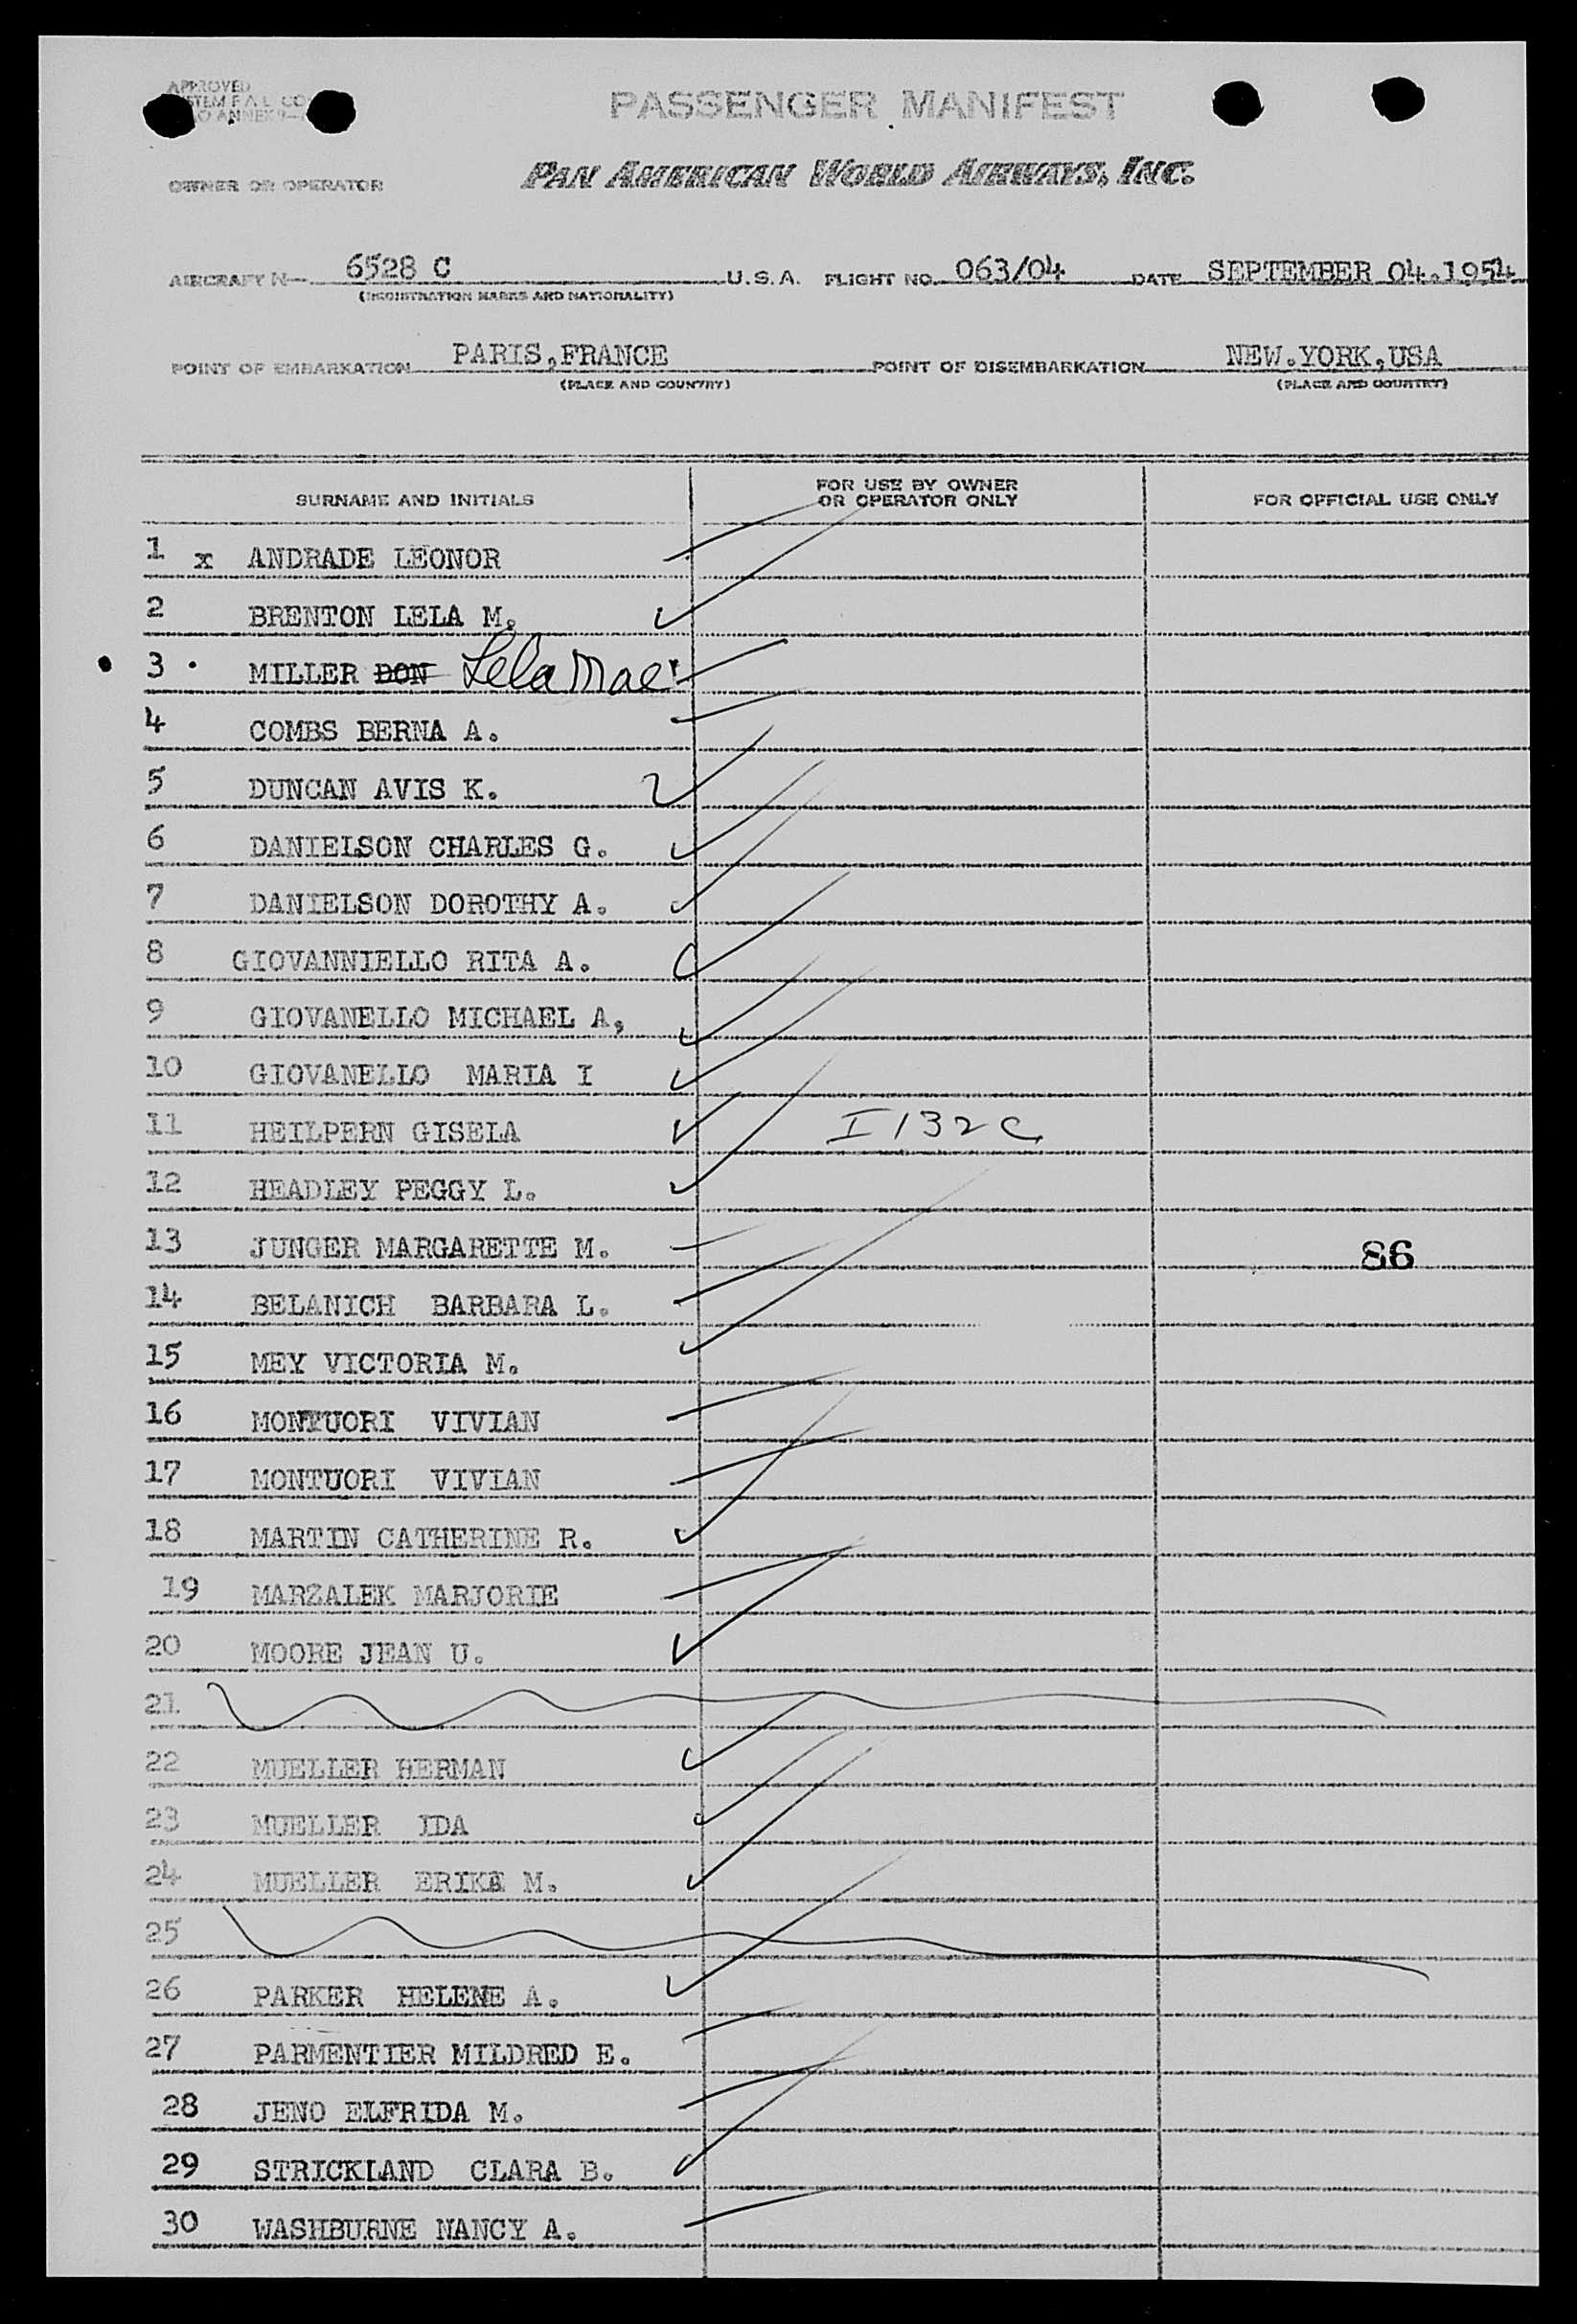 APPROVED
PASSENGER MANIFEST
ANNEX 9
OWNER OR OPERATOR
PAN AMERICAN WORLD AIRWAYS, INC.
AIRCRAFT N— 6528 C U.S.A. FLIGHT NO. 063/04 DATE SEPTEMBER 04.1954
(REGISTRATION MARKS AND NATIONALITY)
POINT OF EMBARKATION PARIS,FRANCE POINT OF DISEMBARKATION NEW.YORK,USA
(PLACE AND COUNTRY) (PLACE AND COUNTRY)
SURNAME AND INITIALS FOR USE BY OWNER OR OPERATOR ONLY FOR OFFICIAL USE ONLY
1 x ANDRADE LEONOR
2 BRENTON LELA M.
3 . MILLER DON Lela Mae
4 COMBS BERNA A.
5 DUNCAN AVIS K.
6 DANIELSON CHARLES G.
7 DANIELSON DOROTHY A.
8 GIOVANNIELLO RITA A.
9 GIOVANELLO MICHAEL A,
10 GIOVANELLO MARIA I
11 HEILPERN GISELA I 132 C
12 HEADLEY PEGGY L.
13 JUNGER MARGARETTE M. 86
14 BELANICH BARBARA L.
15 MEY VICTORIA M.
16 MONTUORI VIVIAN
17 MONTUORI VIVIAN
18 MARTIN CATHERINE R.
19 MARZALEK MARJORIE
20 MOORE JEAN U.
21
22 MUELLER HERMAN
23 MUELLER IDA
24 MUELLER ERIKA M.
25
26 PARKER HELENE A.
27 PARMENTIER MILDRED E.
28 JENO ELFRIDA M.
29 STRICKLAND CLARA B.
30 WASHBURNE NANCY A.